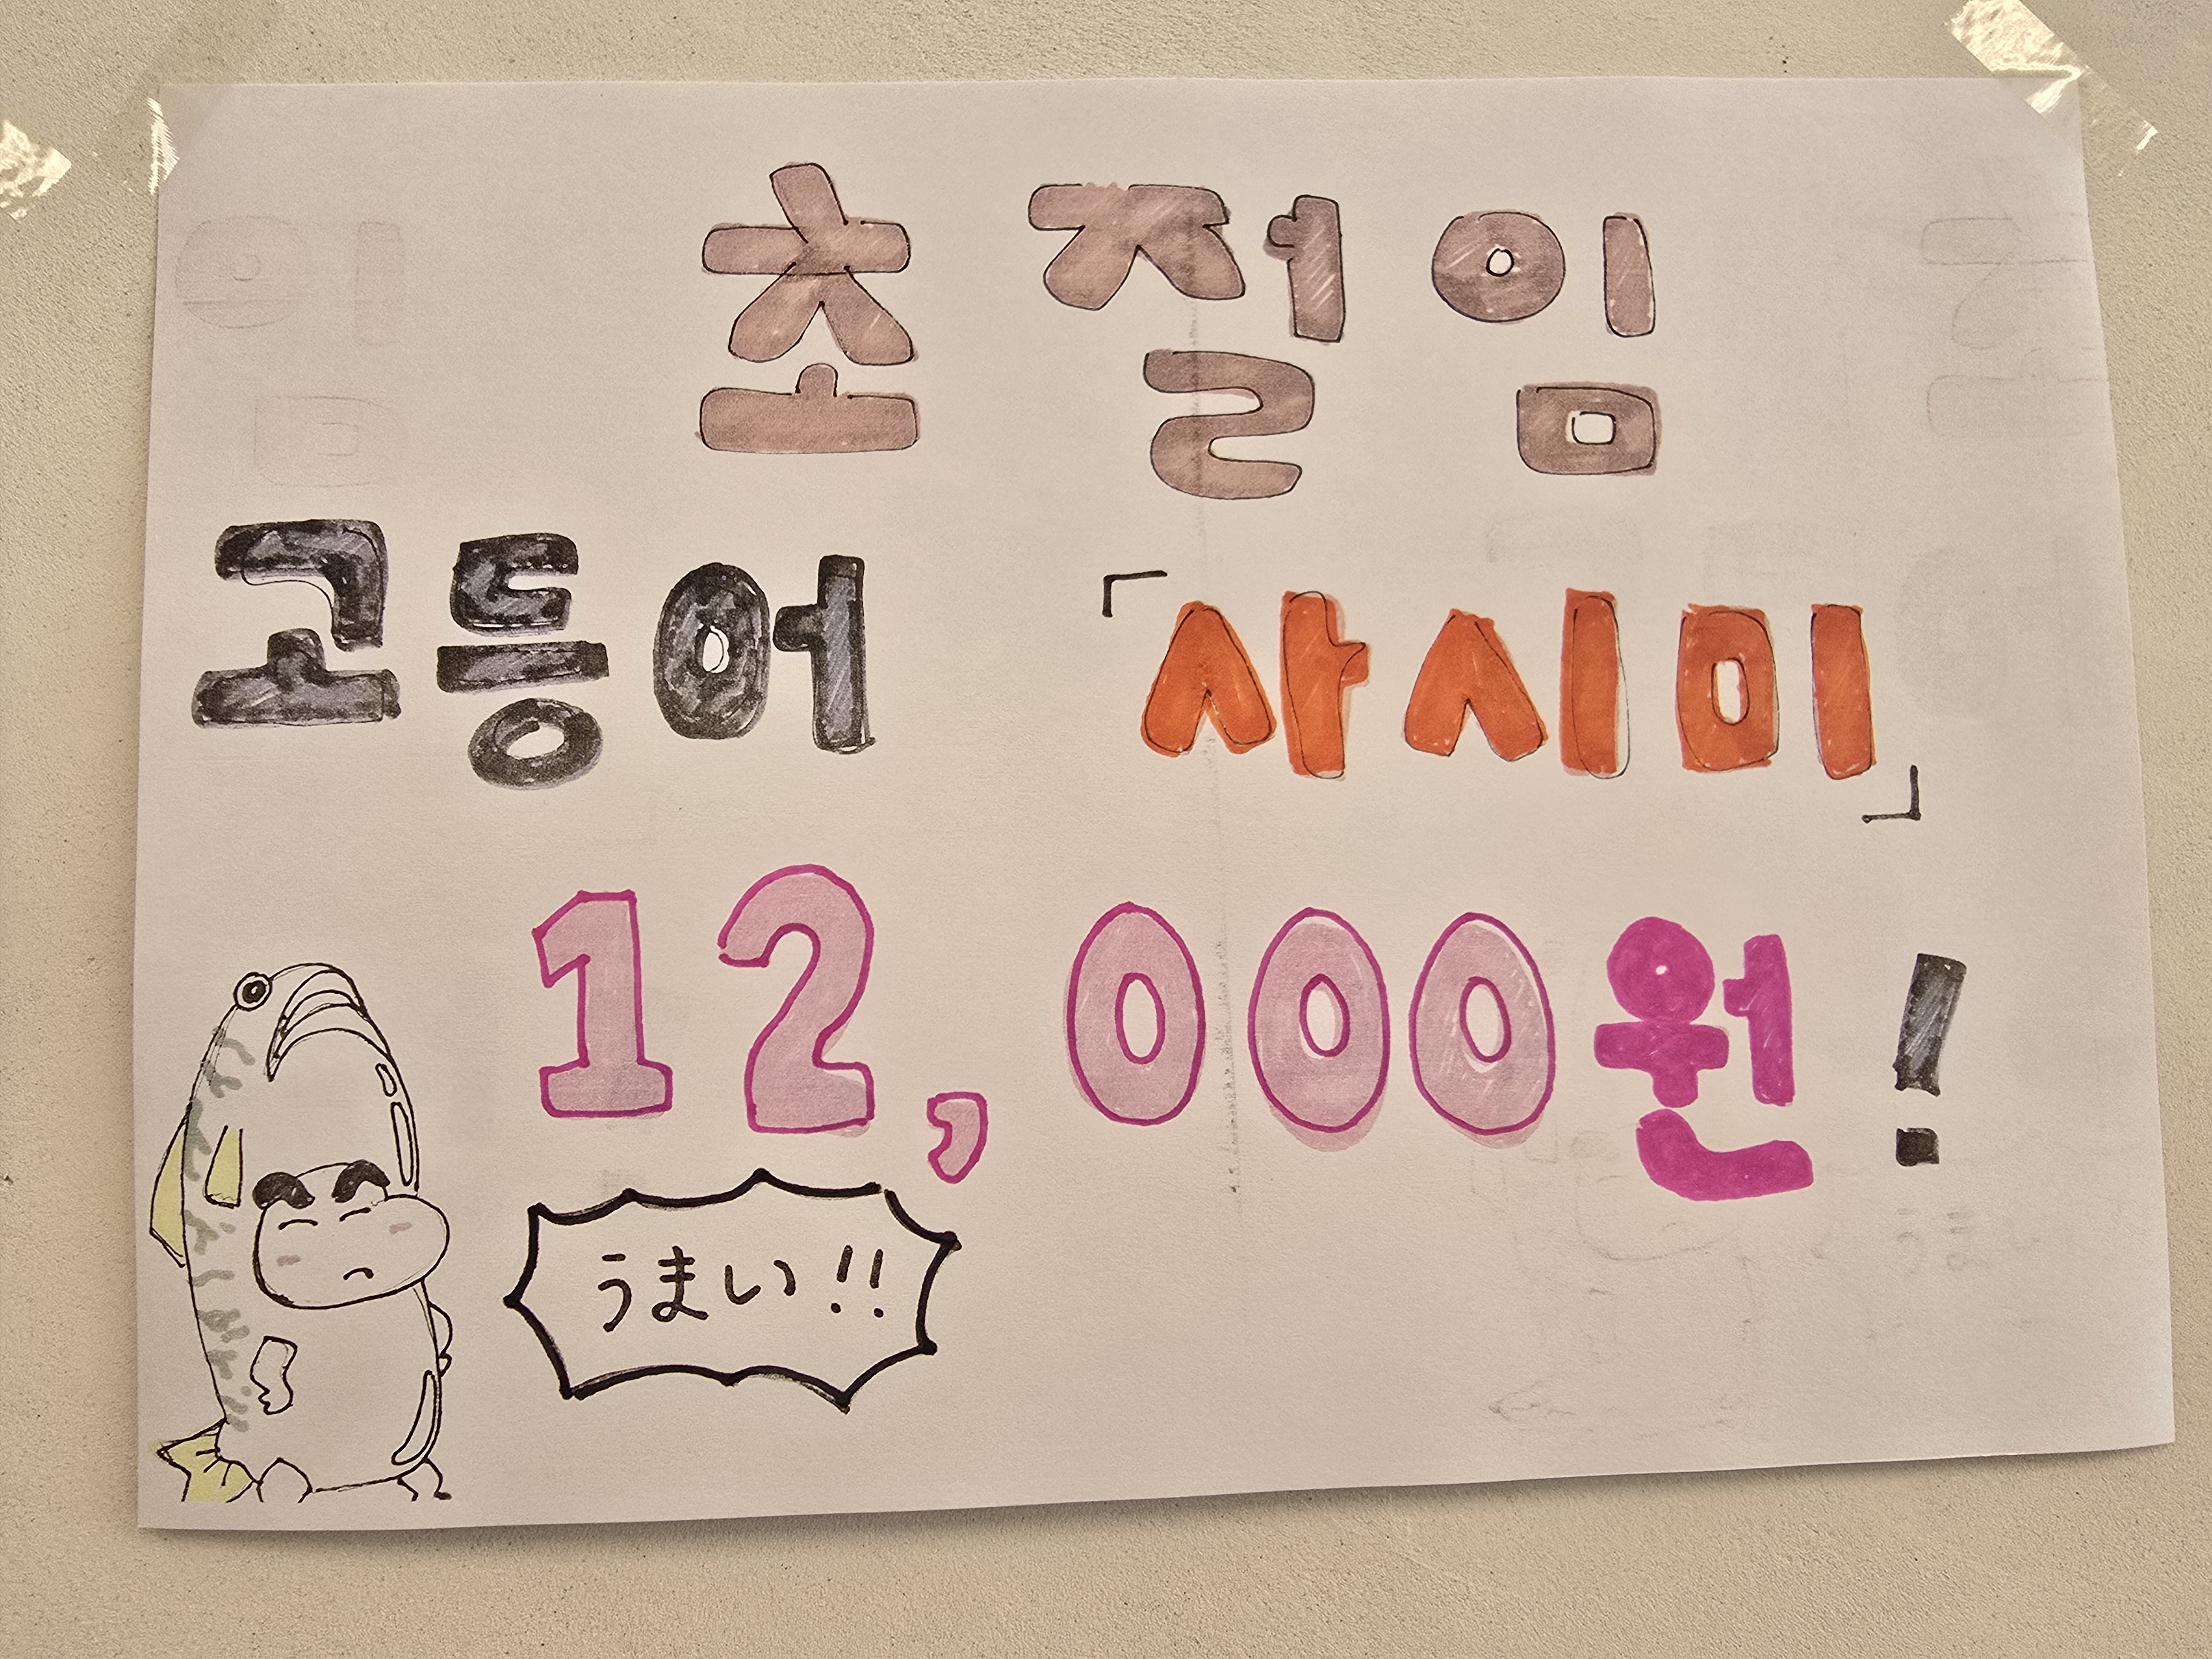 초절임
고등어 「사시미」
12,000원!
うまい!!